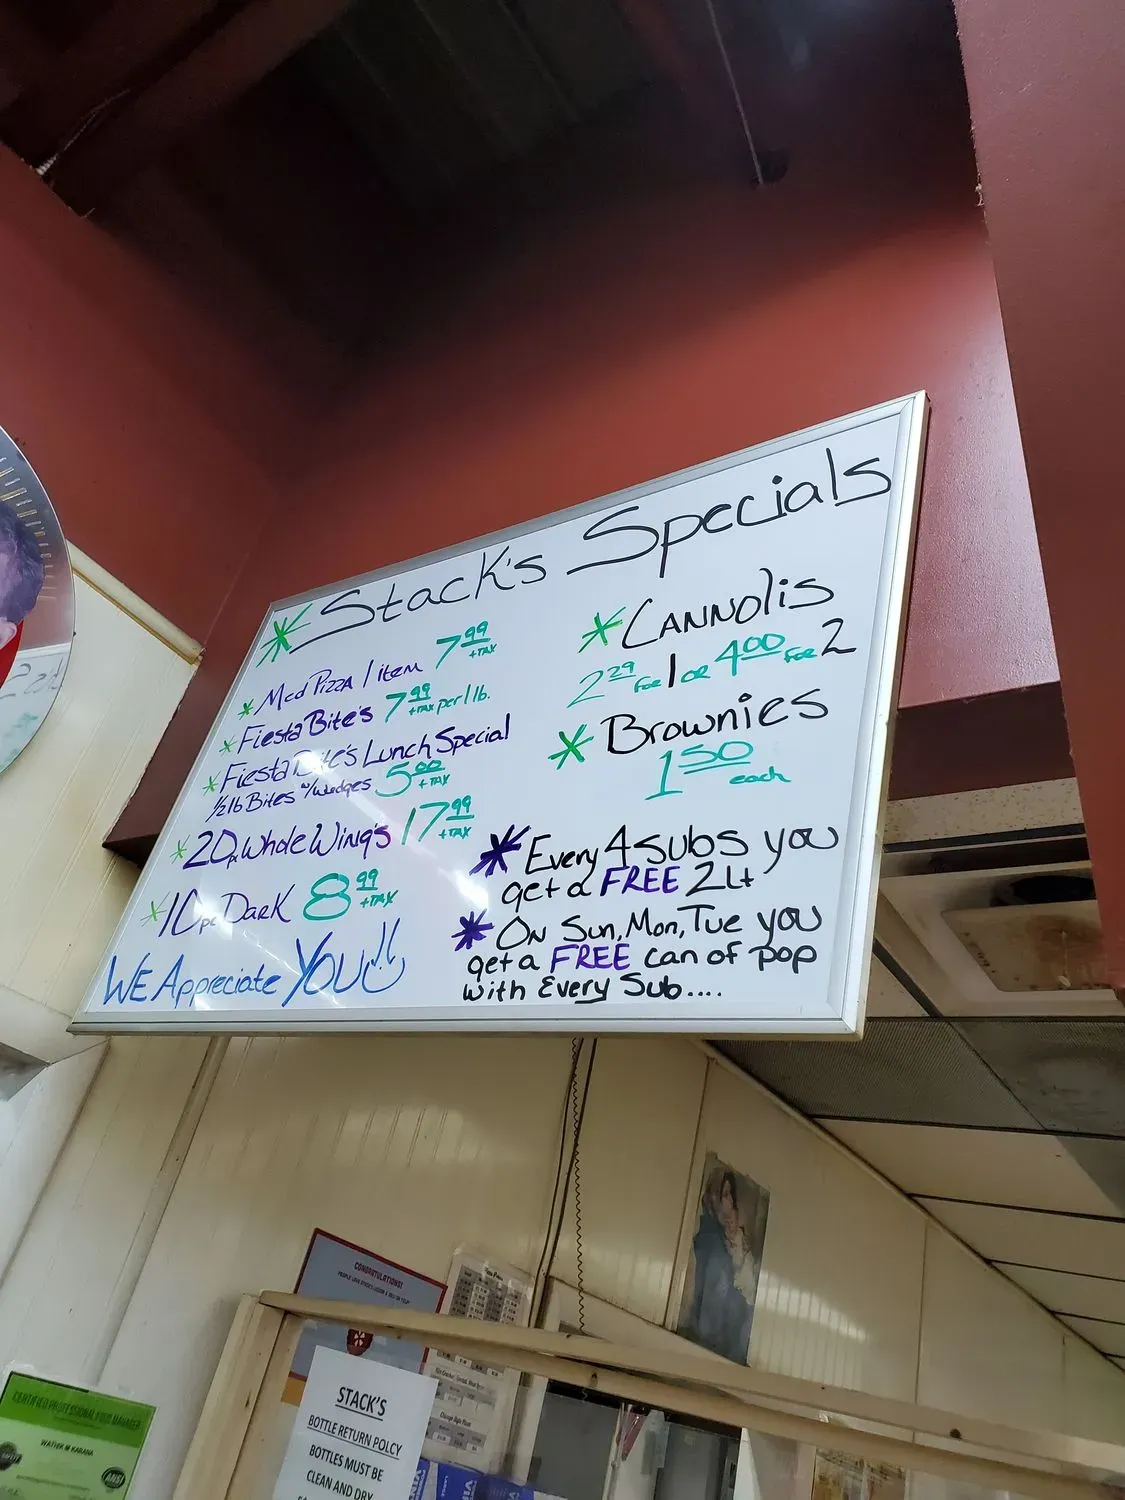 * Stack's Specials
* Med Pizza 1 item 7.99 +TAX
* Fiesta Bite's 7.99 +TAX per 1 lb.
* Fiesta Bite's Lunch Special
1/2 lb Bites w/wedges 5.00 +TAX
* 20pc Whole Wing's 17.99 +TAX
* 10pc Dark 8.99 +TAX
WE Appreciate YOU!!
* CANNOlis
2.29 FOR 1 OR 4.00 FOR 2
* Brownies
1.50 each
* Every 4 subs you
get a FREE 2Lt
* ON Sun, Mon, Tue you
get a FREE can of pop
with Every Sub....
CONGRATULATIONS!
STACK'S
BOTTLE RETURN POLCY
BOTTLES MUST BE
CLEAN AND DRY
CERTIFIED PROFESSIONAL FOOD MANAGER
ANSI